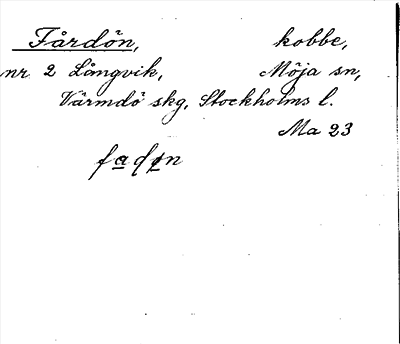 Fårdön, kobbe,
nr 2 Långvik, Möja sn,
Värmdö skg, Stockholms l.
Ma 23
fadøn